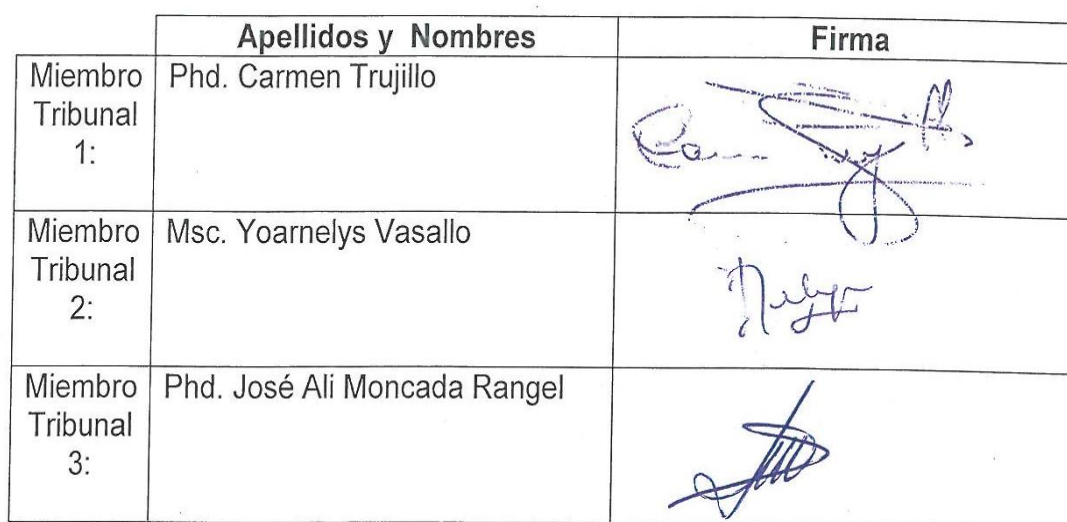 Apellidos y Nombres Firma
Miembro Tribunal 1: Phd. Carmen Trujillo
Miembro Tribunal 2: Msc. Yoarnelys Vasallo
Miembro Tribunal 3: Phd. José Ali Moncada Rangel